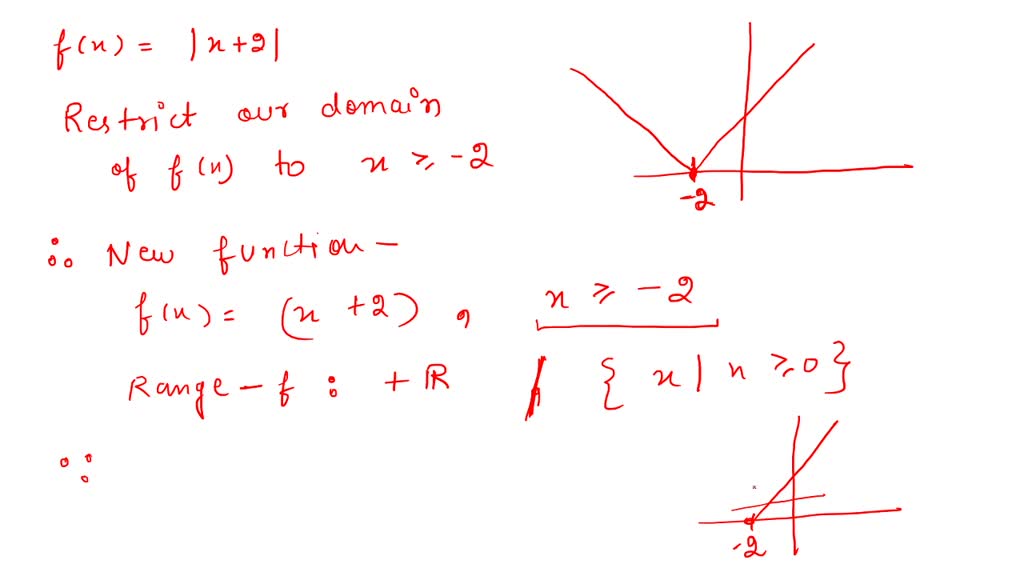 f(x) = |x+2|
Restrict our domain
of f(x) to x ≥ -2
-2
∴ New function -
f(x) = (x +2) , x ≥ -2
Range - f : + ℝ { x | x ≥ 0 }
∵
-2